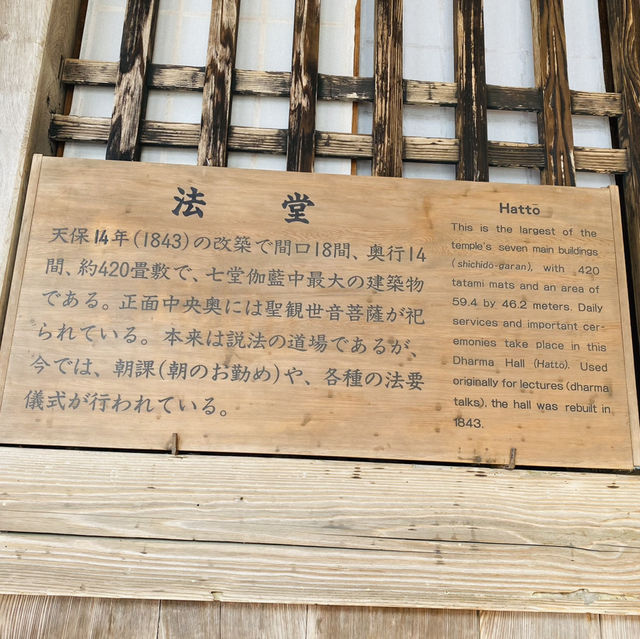 法堂
天保14年(1843)の改築で間口18間、奥行14
間、約420畳敷で、七堂伽藍中最大の建築物
である。正面中央奥には聖観世音菩薩が祀
られている。本来は説法の道場であるが、
今では、朝課(朝のお勤め)や、各種の法要
儀式が行われている。
Hattō
This is the largest of the
temple's seven main buildings
(shichido-garan), with 420
tatami mats and an area of
59.4 by 46.2 meters. Daily
services and important cer-
emonies take place in this
Dharma Hall (Hattō). Used
originally for lectures (dharma
talks), the hall was rebuilt in
1843.